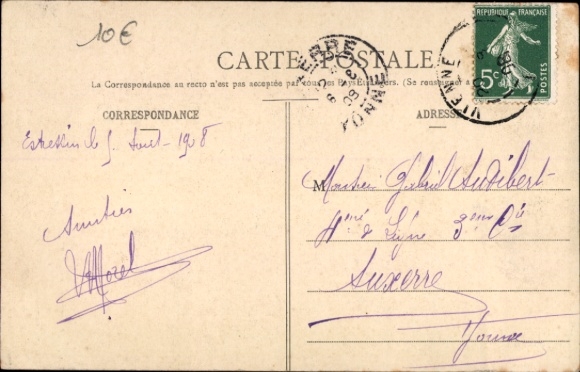 10€
CARTE POSTALE
La Correspondance au recto n'est pas acceptée par tous les Pays Étrangers. (Se renseigner à
RÉPUBLIQUE FRANÇAISE
5c
POSTES
AUXERRE
YONNE
VIENNE
CORRESPONDANCE
ADRESSE
Estressin le 5 Août - 1908
Amitiés
Morel
M Monsieur Gabriel Audibert
4me de Ligne 3eme Cie
Auxerre
Yonne